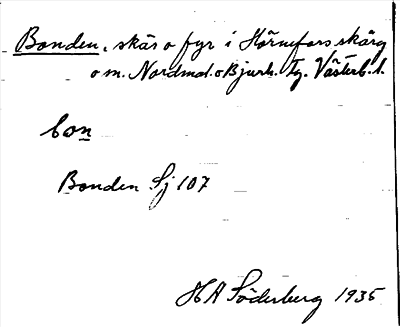 Bonden, skär o fyr i Hörnefors skärg
o m. Nordmal. o Bjurh. tg. Västerb. l.
bon
Bonden Sj 107
H A Söderberg 1935